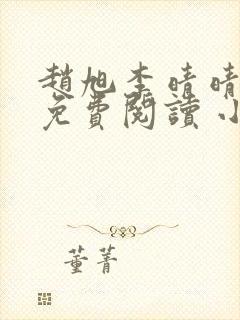 趙旭李晴晴
免費閱讀小
董菁